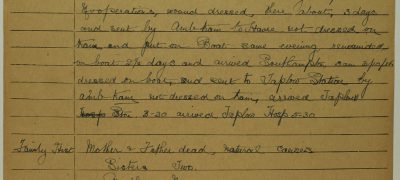 operations, wound dressed, there about 3 days
and sent by Amb train to Havre not dressed on
train, and put on Boat same evening, rewounded
on boat 2½ days and arrived Southampton, 8 am
dressed on boat, and sent to Taplow Station by
Amb train not dressed on train, arrived Taplow
3-20 arrived Taplow Hosp 5-30
Family Hist Mother & Father dead, natural causes
Sisters Two.